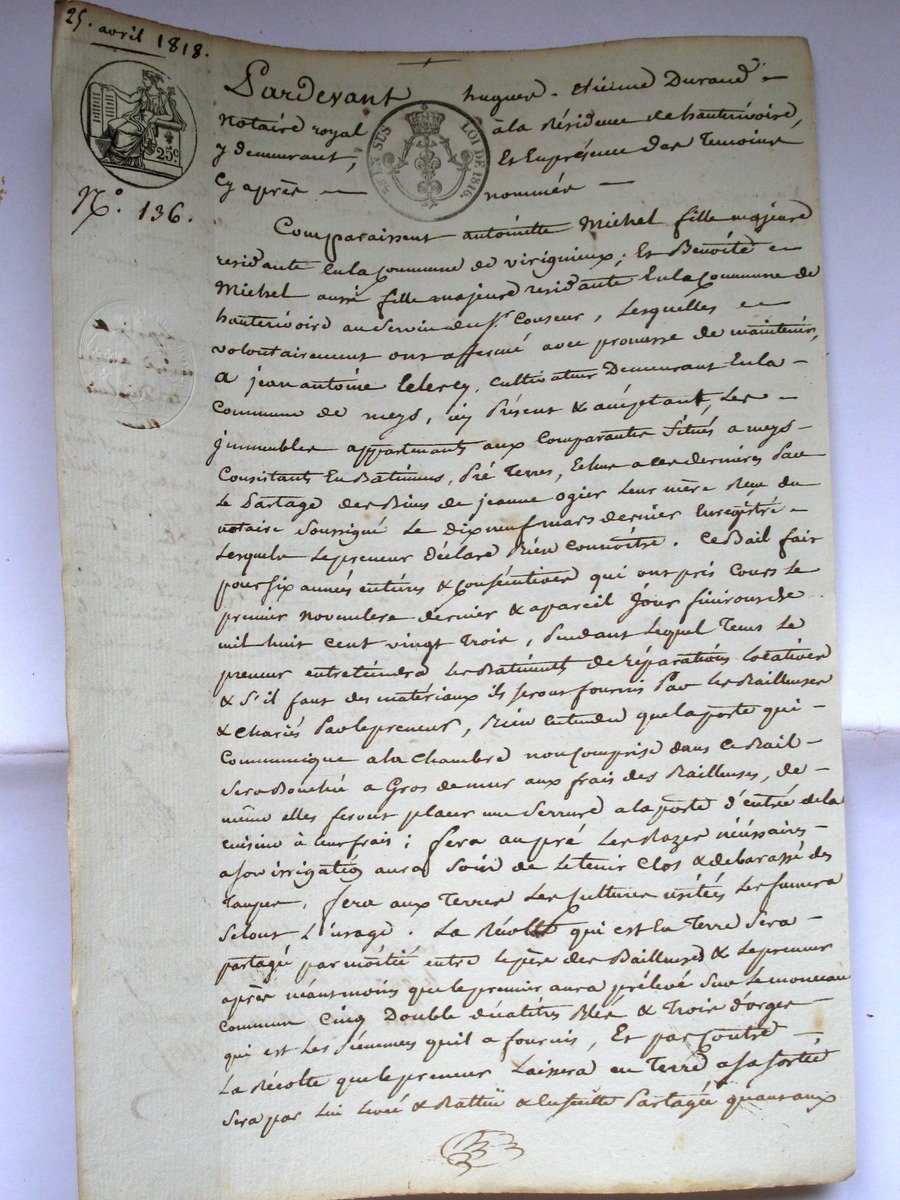 25. avril 1818.
25c
EN SUS
LOI DE 1816.
N.o 136.
Pardevant hugues - etienne Durand -
notaire royal a la Résidence de hauterivoire,
y demeurant, Et En présence des Temoins
Cy après — nommés —
Comparaissent antoinette Michel fille majeure
residante En la Commune de virigneux; Et Benoite
Michel aussi fille majeure residante En la Commune de
hauterivoire au Service du Sr. Couseur, Lesquelles
volontairement ont affermé avec promesse de maintenir,
A jean antoine Celerey, Cultivateur Demeurant En la
Commune de meys, icy Présent & acceptant, Les -
Jmmeubles appartenants aux Comparantes Situés a meys -
Consistants En Batimens, Pré Terres, Echue a ces dernières Par
Le Partage des Biens de jeanne ogier Leur mère Reçu du
notaire Soussigné Le Dix neuf mars dernier Enregistré -
Lesquels Le preneur Déclare Bien Connoitre. Ce Bail fait
pour six années entières & Consécutives qui ont pris Cours Le
premier novembre dernier & a pareil Jour finiront de
mil huit cent vingt Trois, Pendant Lequel Tems Le
preneur entretiendra Les Batiments de réparations locatives
& S'il faut des matériaux ils seront fournis Par Les Bailleuses
& chariés Par le preneur, Bien entendu que la porte qui -
Communique a la Chambre non Comprise dans Ce Bail -
Sera Bouchée a Gros de mur aux frais des Bailleuses, de -
même elles feront placer une Serrure a la porte d'entrée de la
cuisine à leur frais; fera au pré Les Razes nécessaires -
a son irrigation aura Soin de le tenir Clos & debarassé des
Taupes, fera aux Terres Les Cultures usitées Les fumera
Selont L'usage. La Récolte qui est En Terre Sera -
partagée par moitié entre le père des Bailleuses & Le preneur
après néantmoins que le premier aura prélevé Sur Le monceau
commun Cinq Double décalitres Blé & Trois d'orge -
qui est Les Semences qu'il a fournis, Et par Contre -
La Récolte que le preneur Laissera en Terre a sa sortie
Sera par Lui Levée & Battue & Ensuite Partagée quant aux